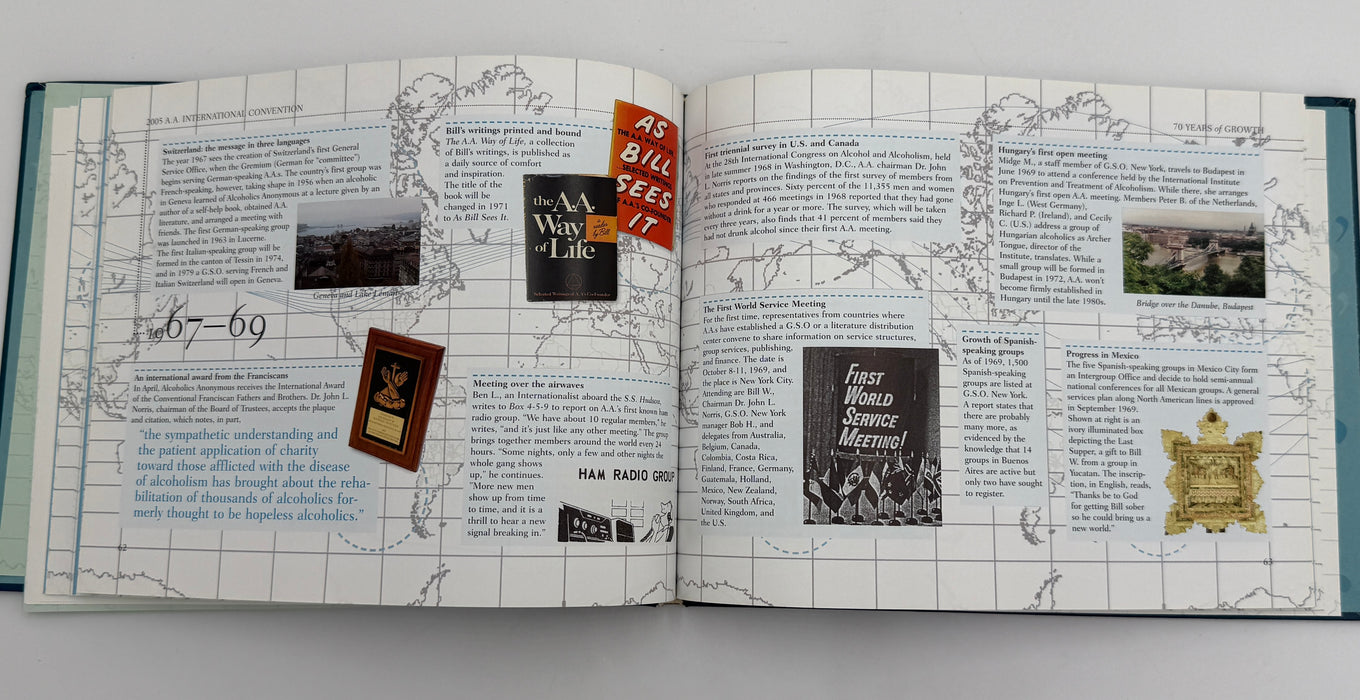 2005 A.A. INTERNATIONAL CONVENTION
Switzerland: the message in three languages
The year 1967 sees the creation of Switzerland's first General
Service Office, when the Gremium (German for "committee")
begins serving German-speaking A.A.s. The country's first group was
French-speaking, however, taking shape in 1956 when an alcoholic
in Geneva learned of Alcoholics Anonymous at a lecture given by an
author of a self-help book, obtained A.A.
literature, and arranged a meeting with
friends. The first German-speaking group
was launched in 1963 in Lucerne.
The first Italian-speaking group will be
formed in the canton of Tessin in 1974,
and in 1979 a G.S.O. serving French and
Italian Switzerland will open in Geneva.
Geneva and Lake Leman
Bill's writings printed and bound
The A.A. Way of Life, a collection
of Bill's writings, is published as
a daily source of comfort
and inspiration.
The title of the
book will be
changed in 1971
to As Bill Sees It.
the A.A.
Way
of Life
a
reader
by Bill
Selected Writings of A.A.'s Co-Founder
AS
THE A.A. WAY OF LIFE
BILL
SELECTED WRITINGS
SEES
OF A.A.'S CO-FOUNDER
IT
1967–69
An international award from the Franciscans
In April, Alcoholics Anonymous receives the International Award
of the Conventional Franciscan Fathers and Brothers. Dr. John L.
Norris, chairman of the Board of Trustees, accepts the plaque
and citation, which notes, in part,
"the sympathetic understanding and
the patient application of charity
toward those afflicted with the disease
of alcoholism has brought about the reha-
bilitation of thousands of alcoholics for-
merly thought to be hopeless alcoholics."
Meeting over the airwaves
Ben L., an Internationalist aboard the S.S. Hudson,
writes to Box 4-5-9 to report on A.A.'s first known ham
radio group. "We have about 10 regular members," he
writes, "and it's just like any other meeting." The group
brings together members around the world every 24
hours. "Some nights, only a few and other nights the
whole gang shows
up," he continues.
"More new men
show up from time
to time, and it is a
thrill to hear a new
signal breaking in."
HAM RADIO GROUP
62
70 YEARS of GROWTH
First triennial survey in U.S. and Canada
At the 28th International Congress on Alcohol and Alcoholism, held
in late summer 1968 in Washington, D.C., A.A. chairman Dr. John
L. Norris reports on the findings of the first survey of members from
all states and provinces. Sixty percent of the 11,355 men and women
who responded at 466 meetings in 1968 reported that they had gone
without a drink for a year or more. The survey, which will be taken
every three years, also finds that 41 percent of members said they
had not drunk alcohol since their first A.A. meeting.
Hungary's first open meeting
Midge M., a staff member of G.S.O. New York, travels to Budapest in
June 1969 to attend a conference held by the International Institute
on Prevention and Treatment of Alcoholism. While there, she arranges
Hungary's first open A.A. meeting. Members Peter B. of the Netherlands,
Inge L. (West Germany),
Richard P. (Ireland), and Cecily
C. (U.S.) address a group of
Hungarian alcoholics as Archer
Tongue, director of the
Institute, translates. While a
small group will be formed in
Budapest in 1972, A.A. won't
become firmly established in
Hungary until the late 1980s.
Bridge over the Danube, Budapest
The First World Service Meeting
For the first time, representatives from countries where
A.A.s have established a G.S.O or a literature distribution
center convene to share information on service structures,
group services, publishing,
and finance. The date is
October 8-11, 1969, and
the place is New York City.
Attending are Bill W.,
Chairman Dr. John L.
Norris, G.S.O. New York
manager Bob H., and
delegates from Australia,
Belgium, Canada,
Colombia, Costa Rica,
Finland, France, Germany,
Guatemala, Holland,
Mexico, New Zealand,
Norway, South Africa,
United Kingdom, and
the U.S.
FIRST
WORLD
SERVICE
MEETING!
Growth of Spanish-
speaking groups
As of 1969, 1,500
Spanish-speaking
groups are listed at
G.S.O. New York.
A report states that
there are probably
many more, as
evidenced by the
knowledge that 14
groups in Buenos
Aires are active but
only two have sought
to register.
Progress in Mexico
The five Spanish-speaking groups in Mexico City form
an Intergroup Office and decide to hold semi-annual
national conferences for all Mexican groups. A general
services plan along North American lines is approved
in September 1969.
Shown at right is an
ivory illuminated box
depicting the Last
Supper, a gift to Bill
W. from a group in
Yucatan. The inscrip-
tion, in English, reads,
"Thanks be to God
for getting Bill sober
so he could bring us a
new world."
63